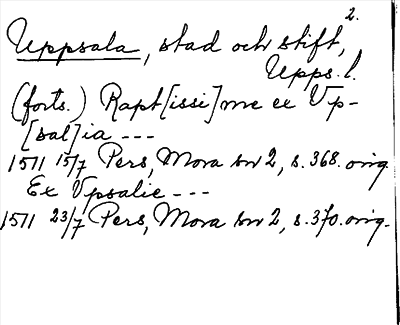 2.
Uppsala, stad och stift,
Upps. l.
(forts.) Rapt[issi]me ex Vp-
[sal]ia ---
1511 15/7 Pers, Mora sn 2, s. 368. orig.
Ex Vpsalie ---
1511 23/7 Pers, Mora sn 2, s. 370. orig.